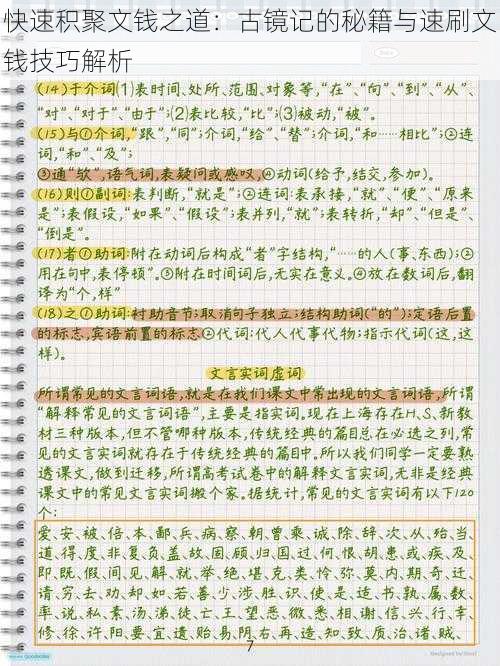 快速积聚文钱之道：古镜记的秘籍与速刷文
钱技巧解析
(14)于介词⑴表时间、处所、范围、对象等,“在”、“向”、“到”、“从”、
“对”、“对于”、“由于”;⑵表比较,“比”;⑶被动,“被”。
(15)与①介词,“跟”,“同”;介词,“给”、“替”;介词,“和……相比”;②连
词,“和”、“及”;
③通“欤”,语气词,表疑问或感叹,④动词(给予,结交,参加)。
(16)则①副词:表判断,“就是”;②连词:表承接,“就”、“便”、“原来
是”;表假设,“如果”、“假设”;表并列,“就”;表转折,“却”、“但是”、
“倒是”。
(17)者①助词:附在动词后构成“者”字结构,“……的人(事、东西);②
用在句中,表停顿”。③附在时间词后,无实在意义。④放在数词后,翻
译为“个,样”
(18)之①助词:衬助音节;取消句子独立;结构助词(“的”);定语后置
的标志,宾语前置的标志②代词:代人代事代物;指示代词(这,这
样)。
文言实词虚词
所谓常见的文言词语,就是在我们课文中常出现的文言词语,所谓
“解释常见的文言词语”,主要是指实词。现在上海存在H、S、新教
材三种版本,但不管哪种版本,传统经典的篇目总在必选之列,常
见的文言实词就存在于传统经典的篇目中。所以我们同学一定要熟
透课文,做到迁移,所谓高考试卷中的解释文言实词,无非是经典
课文中的常见文言实词搬个家。据统计,常见的文言实词有以下120
个:
爱、安、被、倍、本、鄙、兵、病、察、朝、曾、乘、诚、除、辞、次、从、殆、当、
道、得、度、非、复、负、盖、故、固、顾、归、国、过、何、恨、胡、患、或、疾、及、
即、既、假、间、见、解、就、举、绝、堪、克、类、怜、弥、莫、内、期、奇、迁、
请、穷、去、劝、却、如、若、善、少、涉、胜、识、使、是、适、书、孰、属、数、
率、说、私、素、汤、涕、徒、亡、王、望、恶、微、悉、相、谢、信、兴、行、幸、
修、徐、许、阳、要、宜、遗、贻、易、阴、右、再、造、知、致、质、治、诸、贼、
7